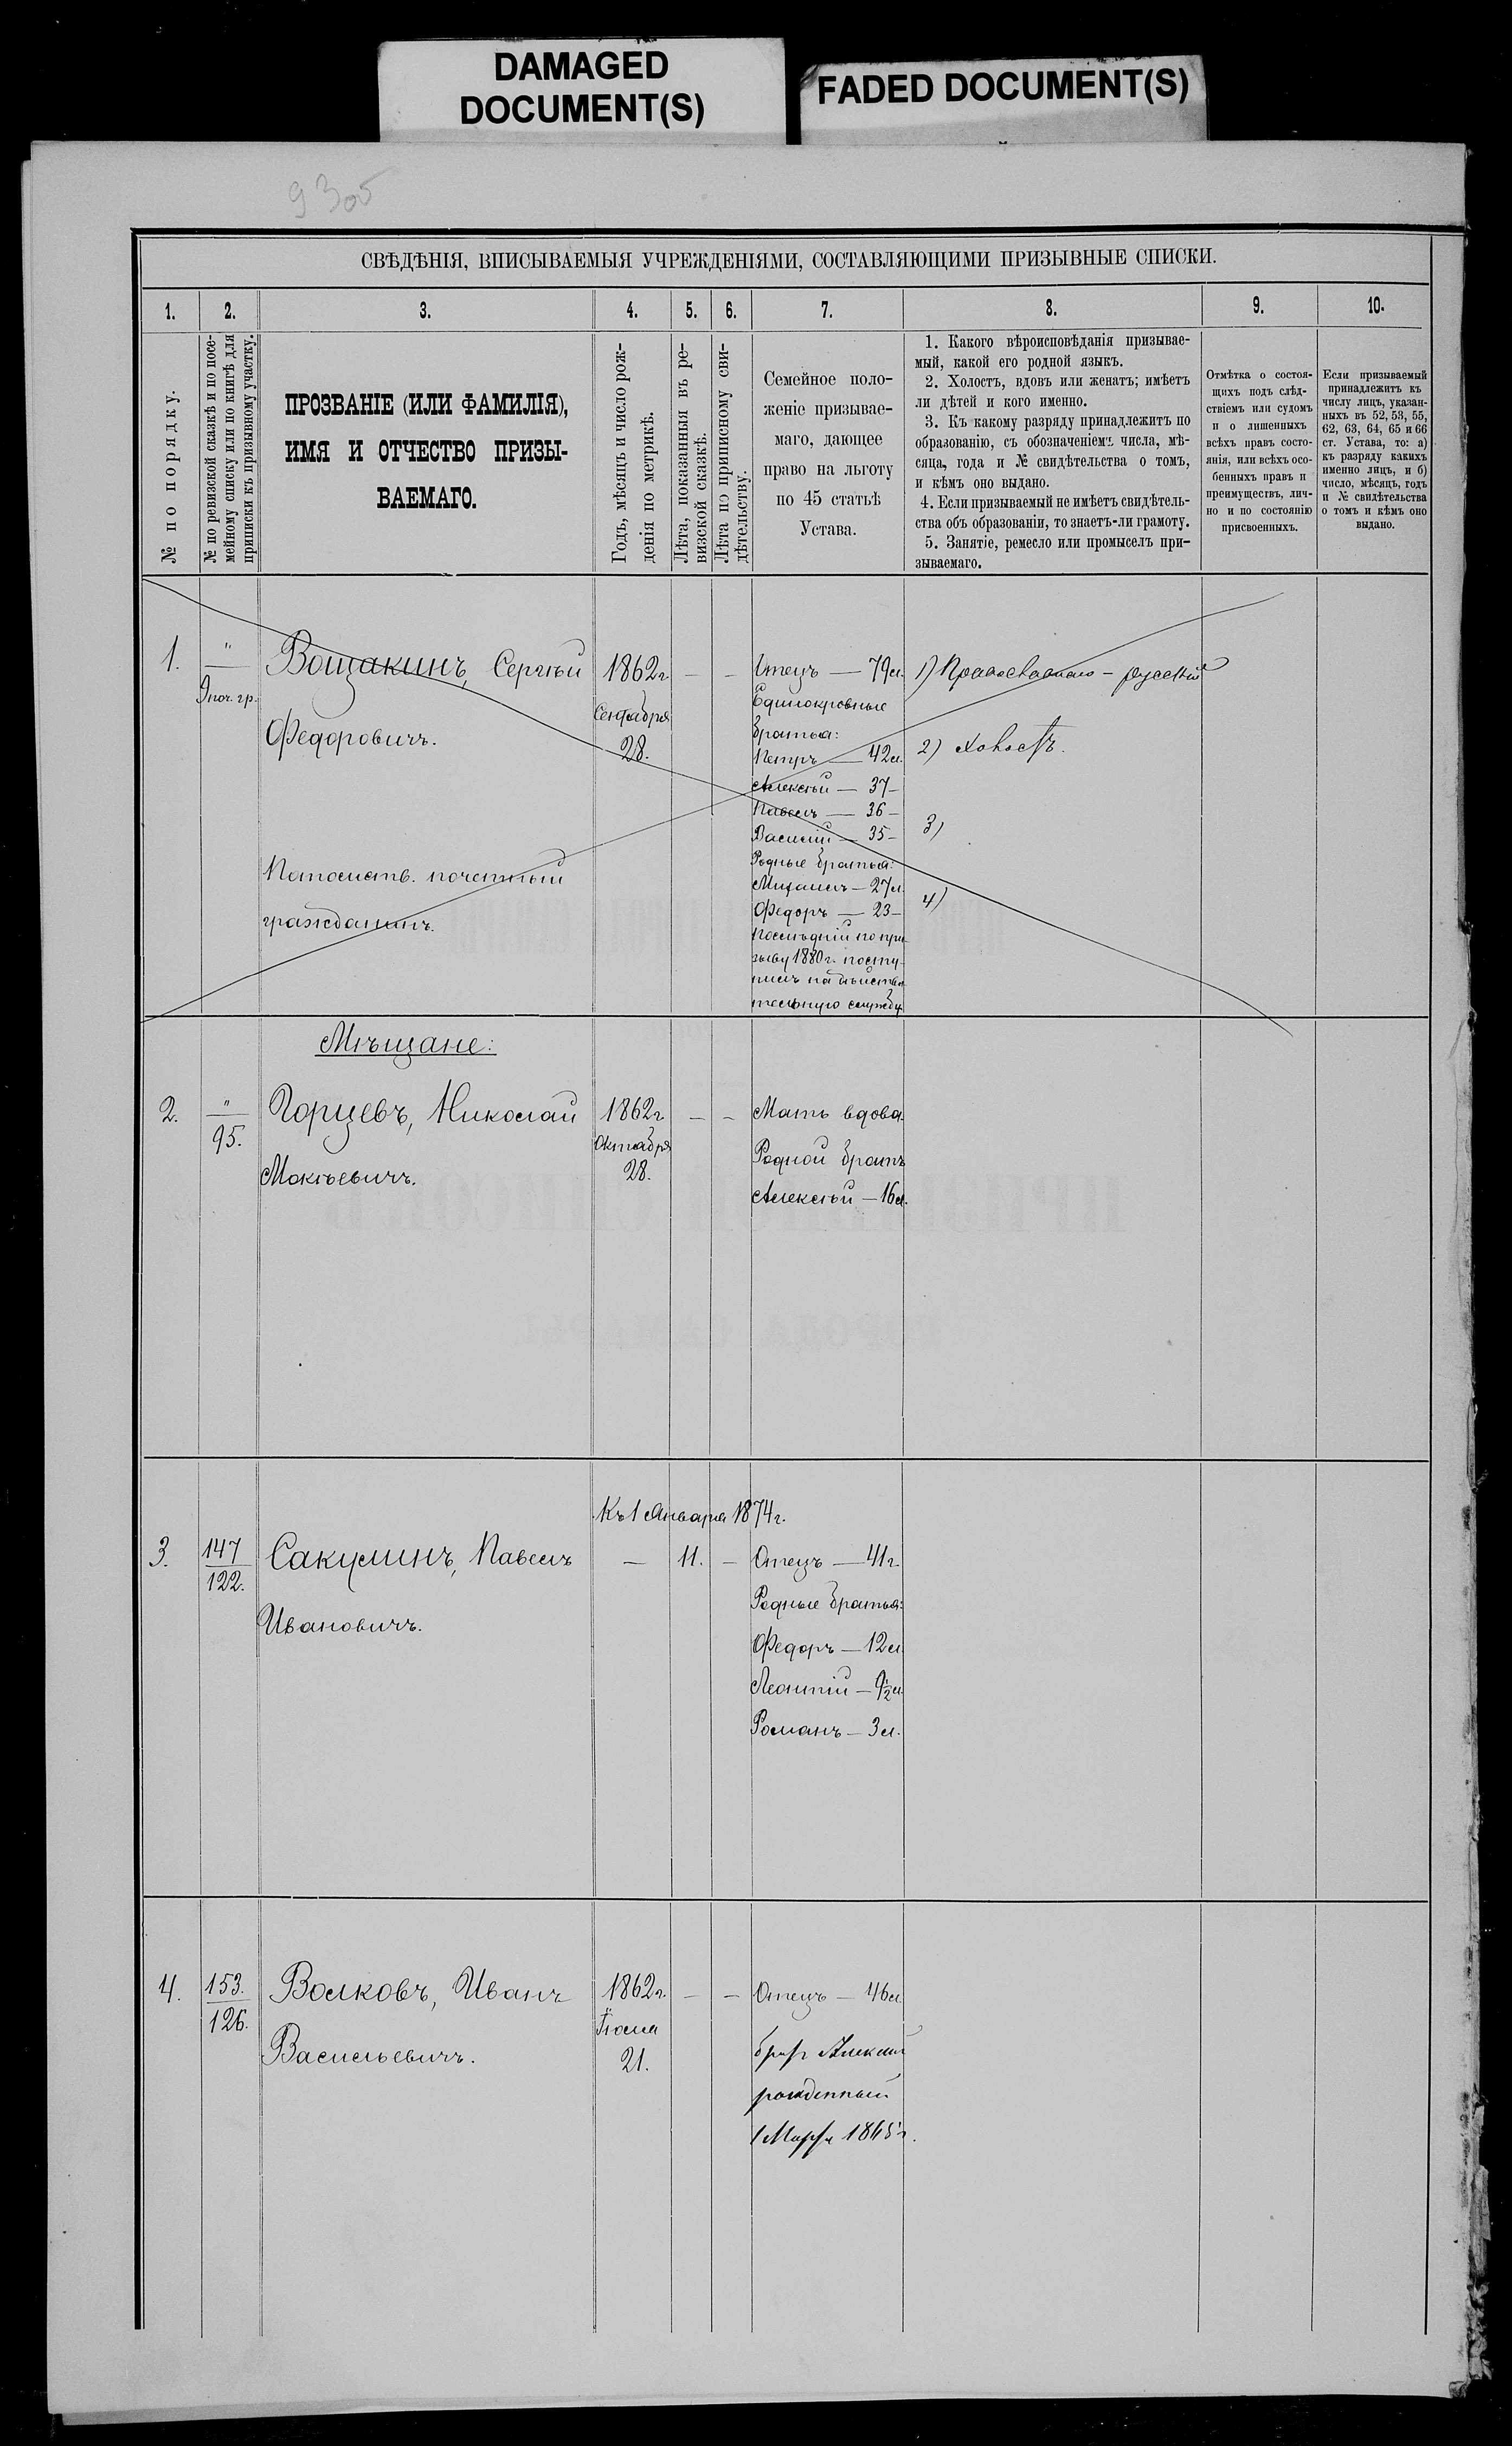 DAMAGED
DOCUMENT(S)
FADED DOCUMENT(S)
9305
СВѢДѢНІЯ, ВПИСЫВАЕМЫЯ УЧРЕЖДЕНІЯМИ, СОСТАВЛЯЮЩИМИ ПРИЗЫВНЫЕ СПИСКИ.
1.
2.
3.
4.
5.
6.
7.
8.
9.
10.
№ по порядку.
№ по ревизской сказкѣ и по посе-
мейному списку или по книгѣ для
приписки къ призывному участку.
ПРОЗВАНІЕ (ИЛИ ФАМИЛІЯ),
ИМЯ И ОТЧЕСТВО ПРИЗЫ-
ВАЕМАГО.
Годъ, мѣсяцъ и число рож-
денія по метрикѣ.
Лѣта, показанныя въ ре-
визской сказкѣ.
Лѣта по приписному сви-
дѣтельству.
Семейное поло-
женіе призывае-
маго, дающее
право на льготу
по 45 статьѣ
Устава.
1. Какого вѣроисповѣданія призывае-
мый, какой его родной языкъ.
2. Холостъ, вдовъ или женатъ; имѣетъ
ли дѣтей и кого именно.
3. Къ какому разряду принадлежитъ по
образованію, съ обозначеніемъ числа, мѣ-
сяца, года и № свидѣтельства о томъ,
и кѣмъ оно выдано.
4. Если призываемый не имѣетъ свидѣтель-
ства объ образованіи, то знаетъ-ли грамоту.
5. Занятіе, ремесло или промыселъ при-
зываемаго.
Отмѣтка о состоя-
щихъ подъ слѣд-
ствіемъ или судомъ
и о лишенныхъ
всѣхъ правъ состо-
янія, или всѣхъ осо-
бенныхъ правъ и
преимуществъ, лич-
но и по состоянію
присвоенныхъ.
Если призываемый
принадлежитъ къ
числу лицъ, указан-
ныхъ въ 52, 53, 55,
62, 63, 64, 65 и 66
ст. Устава, то: а)
къ разряду какихъ
именно лицъ, и б)
число, мѣсяцъ, годъ
и № свидѣтельства
о томъ и кѣмъ оно
выдано.
1.
"
9 поч. гр.
Вощакинъ, Сергѣй
Федоровичъ.
Потомств. почетный
гражданинъ.
1862г.
Сентября
28.
—
—
Отецъ — 79л.
Единокровные
братья:
Петръ — 42л.
Алексѣй — 37 —
Павелъ — 36 —
Василій — 35 —
Родные братья:
Михаилъ — 27л.
Федоръ — 23 —
Послѣдній по при-
зыву 1880г. посту-
пилъ на дѣйстви-
тельную службу.
1) Православнаго — русскій
2) Холостъ.
3)
4)
Мѣщане:
2.
"
95.
Горцевъ, Николай
Мокѣевичъ.
1862г.
Октября
28.
—
—
Мать вдова.
Родной братъ
Алексѣй — 16л.
Къ 1 Января 1874г.
3.
147
122.
Сакулинъ, Павелъ
Ивановичъ.
—
11.
—
Отецъ — 41г.
Родные братья:
Федоръ — 12л.
Леонтій — 9½л.
Романъ — 3л.
4.
153.
126.
Волковъ, Иванъ
Васильевичъ.
1862г.
Іюля
21.
—
—
Отецъ — 46л.
братъ Алексѣй
рожденный
1 Марта 1865г.